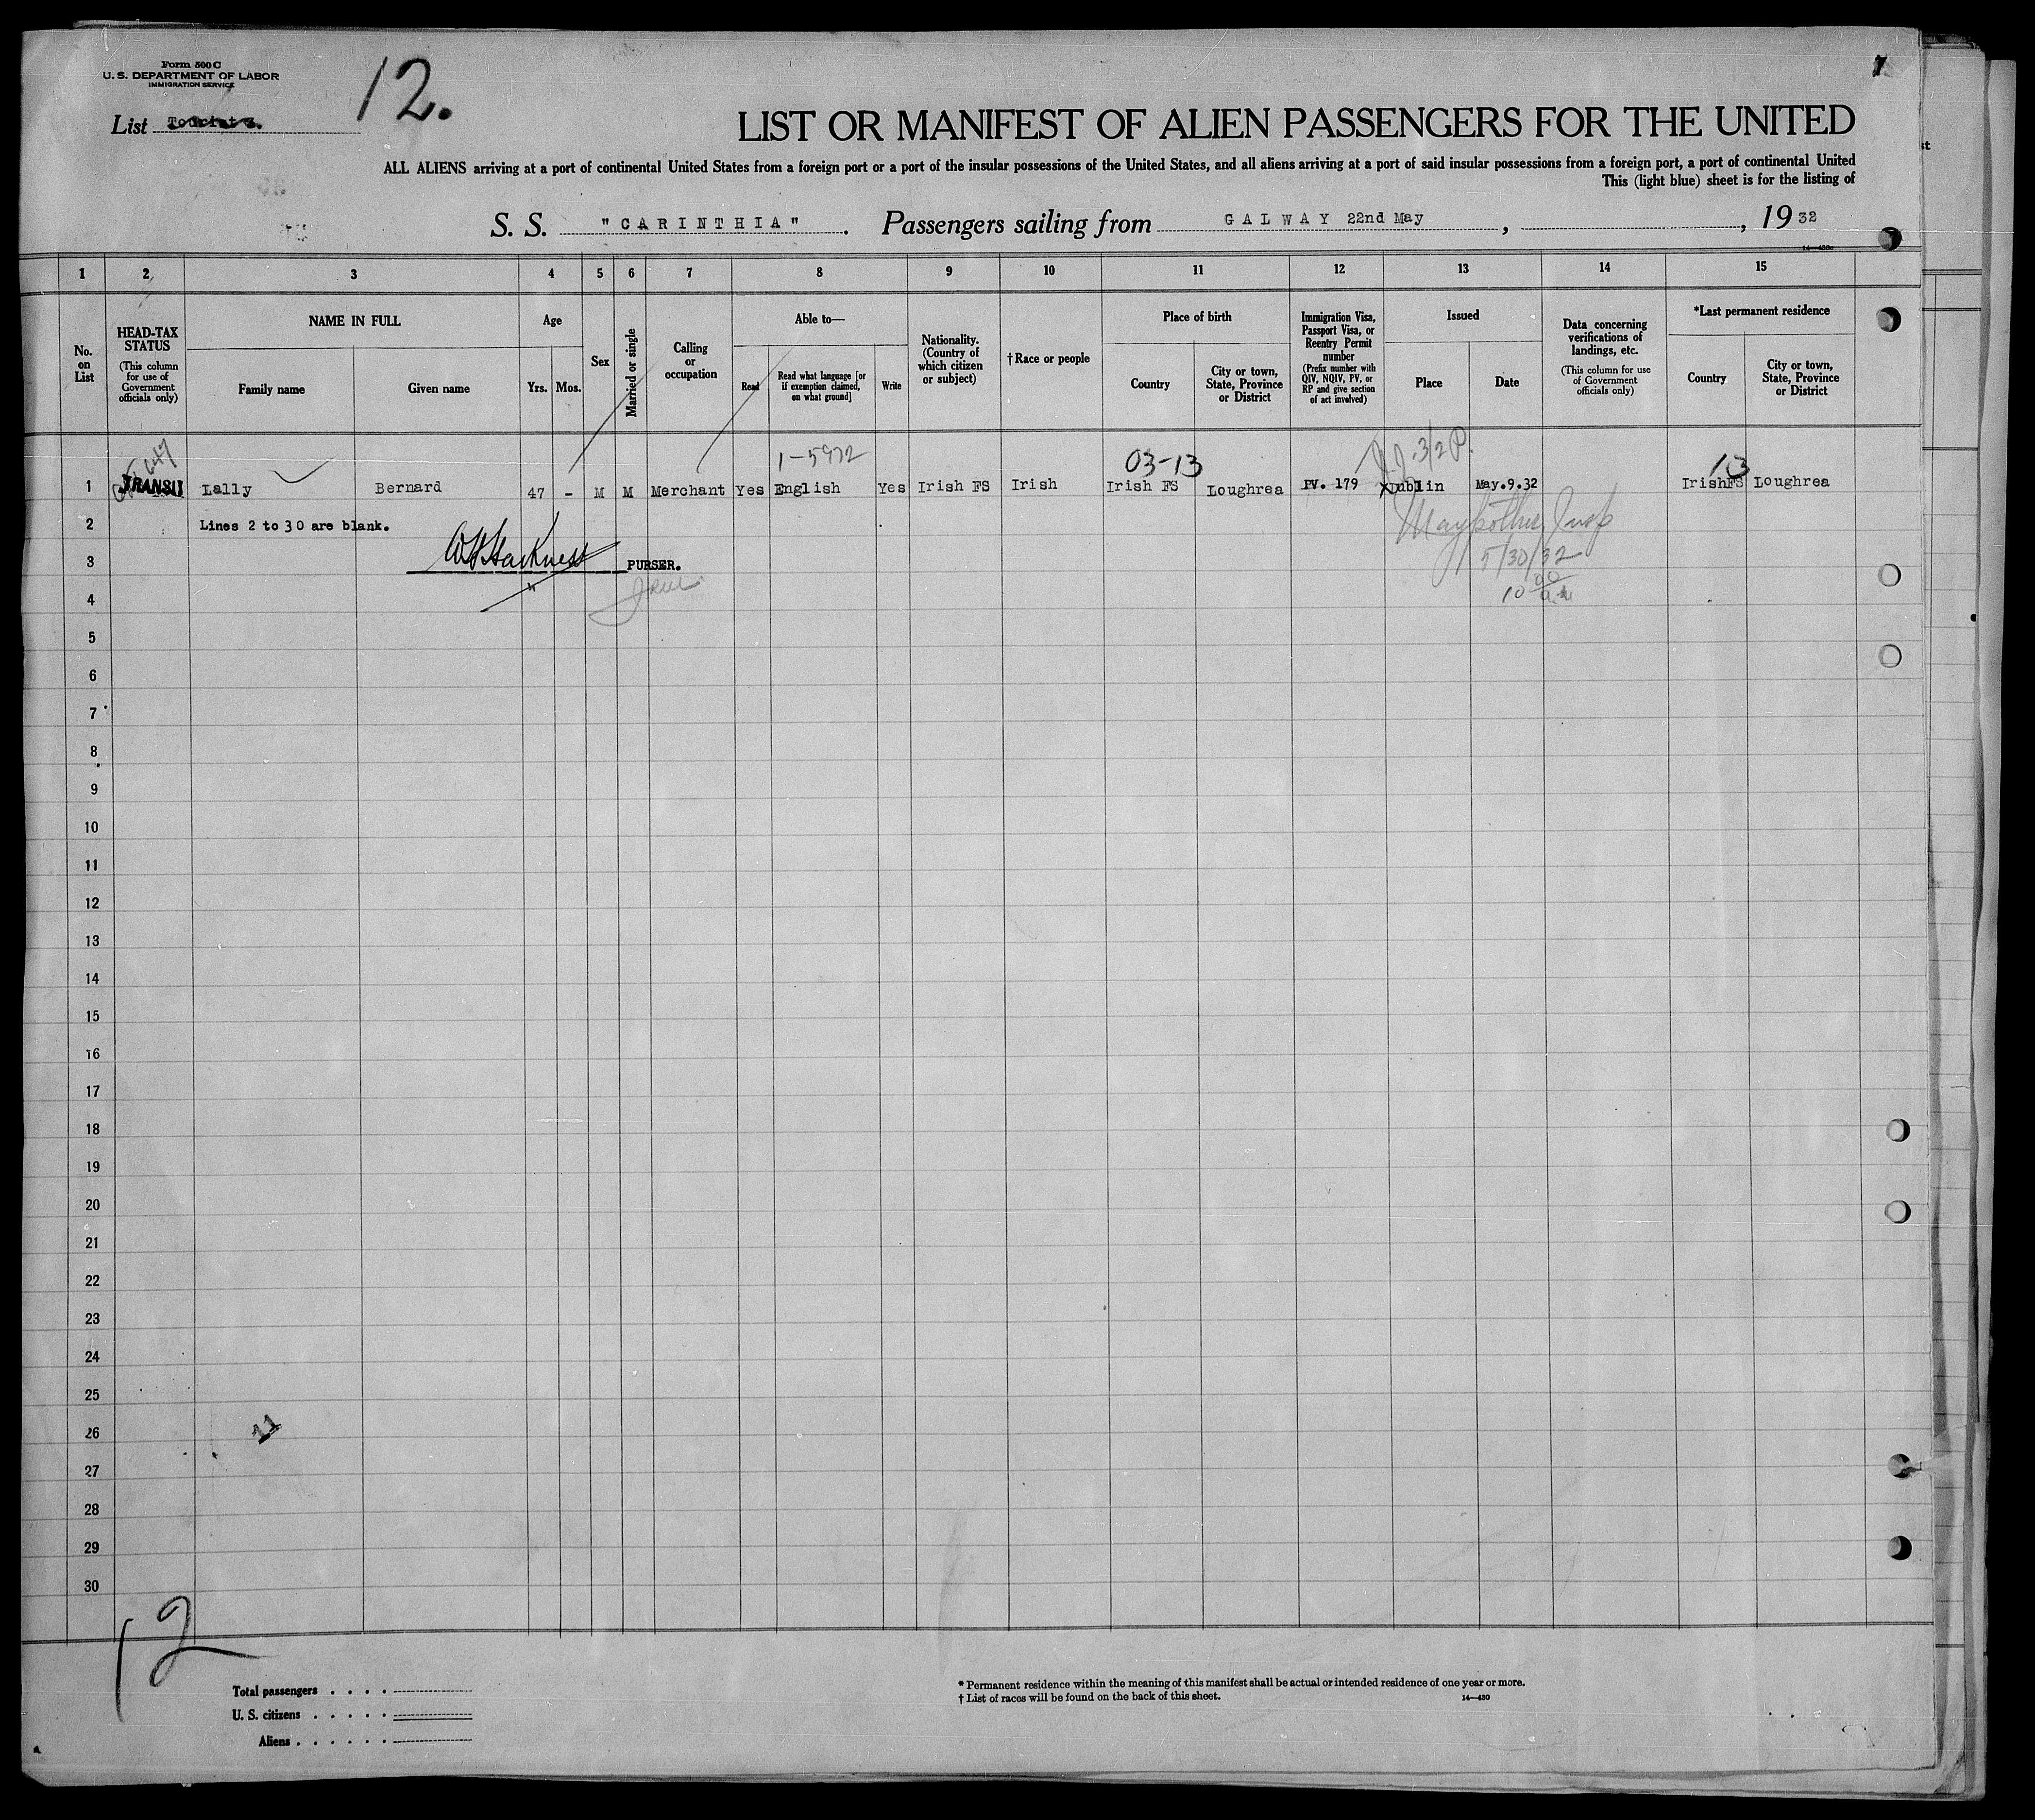 Form 500 C
U. S. DEPARTMENT OF LABOR
IMMIGRATION SERVICE
List
12.
1
LIST OR MANIFEST OF ALIEN PASSENGERS FOR THE UNITED
ALL ALIENS arriving at a port of continental United States from a foreign port or a port of the insular possessions of the United States, and all aliens arriving at a port of said insular possessions from a foreign port, a port of continental United
This (light blue) sheet is for the listing of
S. S. "CARINTHIA". Passengers sailing from GALWAY 22nd May, , 19 32
1 2 3 4 5 6 7 8 9 10 11 12 13 14 15
No. on List
HEAD-TAX STATUS
(This column for use of Government officials only)
NAME IN FULL
Family name
Given name
Age
Yrs.
Mos.
Sex
Married or single
Calling or occupation
Able to—
Read
Read what language [or if exemption claimed, on what ground]
Write
Nationality. (Country of which citizen or subject)
†Race or people
Place of birth
Country
City or town, State, Province or District
Immigration Visa, Passport Visa, or Reentry Permit number
(Prefix number with QIV, NQIV, PV, or RP and give section of act involved)
Issued
Place
Date
Data concerning verifications of landings, etc.
(This column for use of Government officials only)
*Last permanent residence
Country
City or town, State, Province or District
1-5972 03-13 3/2 P. 13
1 TRANSIT Lally Bernard 47 - M M Merchant Yes English Yes Irish FS Irish Irish FS Loughrea PV. 179 Dublin May.9.32 Irish FS Loughrea
2 Lines 2 to 30 are blank.
3 PURSER. 5/30/32
4 10 00 a.m
5
6
7
8
9
10
11
12
13
14
15
16
17
18
19
20
21
22
23
24
25
26
27
28
29
30
12
Total passengers . . . .
U. S. citizens . . . . .
Aliens . . . . . .
* Permanent residence within the meaning of this manifest shall be actual or intended residence of one year or more.
† List of races will be found on the back of this sheet. 14—430